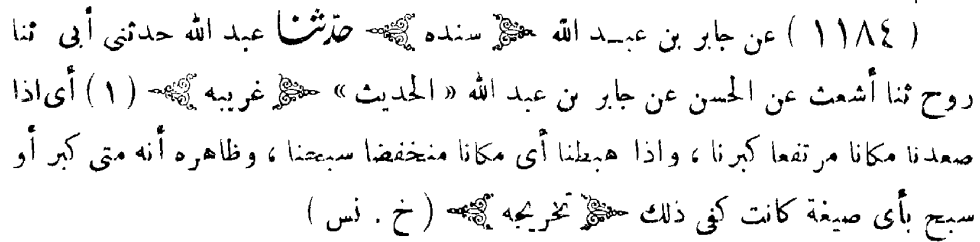 ( ١١٨٤ ) عن جابر بن عبد الله ﴿ سنده ﴾ حدثنا عبد الله حدثنى أبى ثنا
روح ثنا أشعث عن الحسن عن جابر بن عبد الله « الحديث » ﴿ غريبه ﴾ ( ١ ) أى اذا
صعدنا مكانا مرتفعا كبرنا ، واذا هبطنا أى مكانا منخفضا سبحنا ، وظاهره أنه متى كبر أو
سبح بأى صيغة كانت كفى ذلك ﴿ تخريجه ﴾ ( خ . نس )